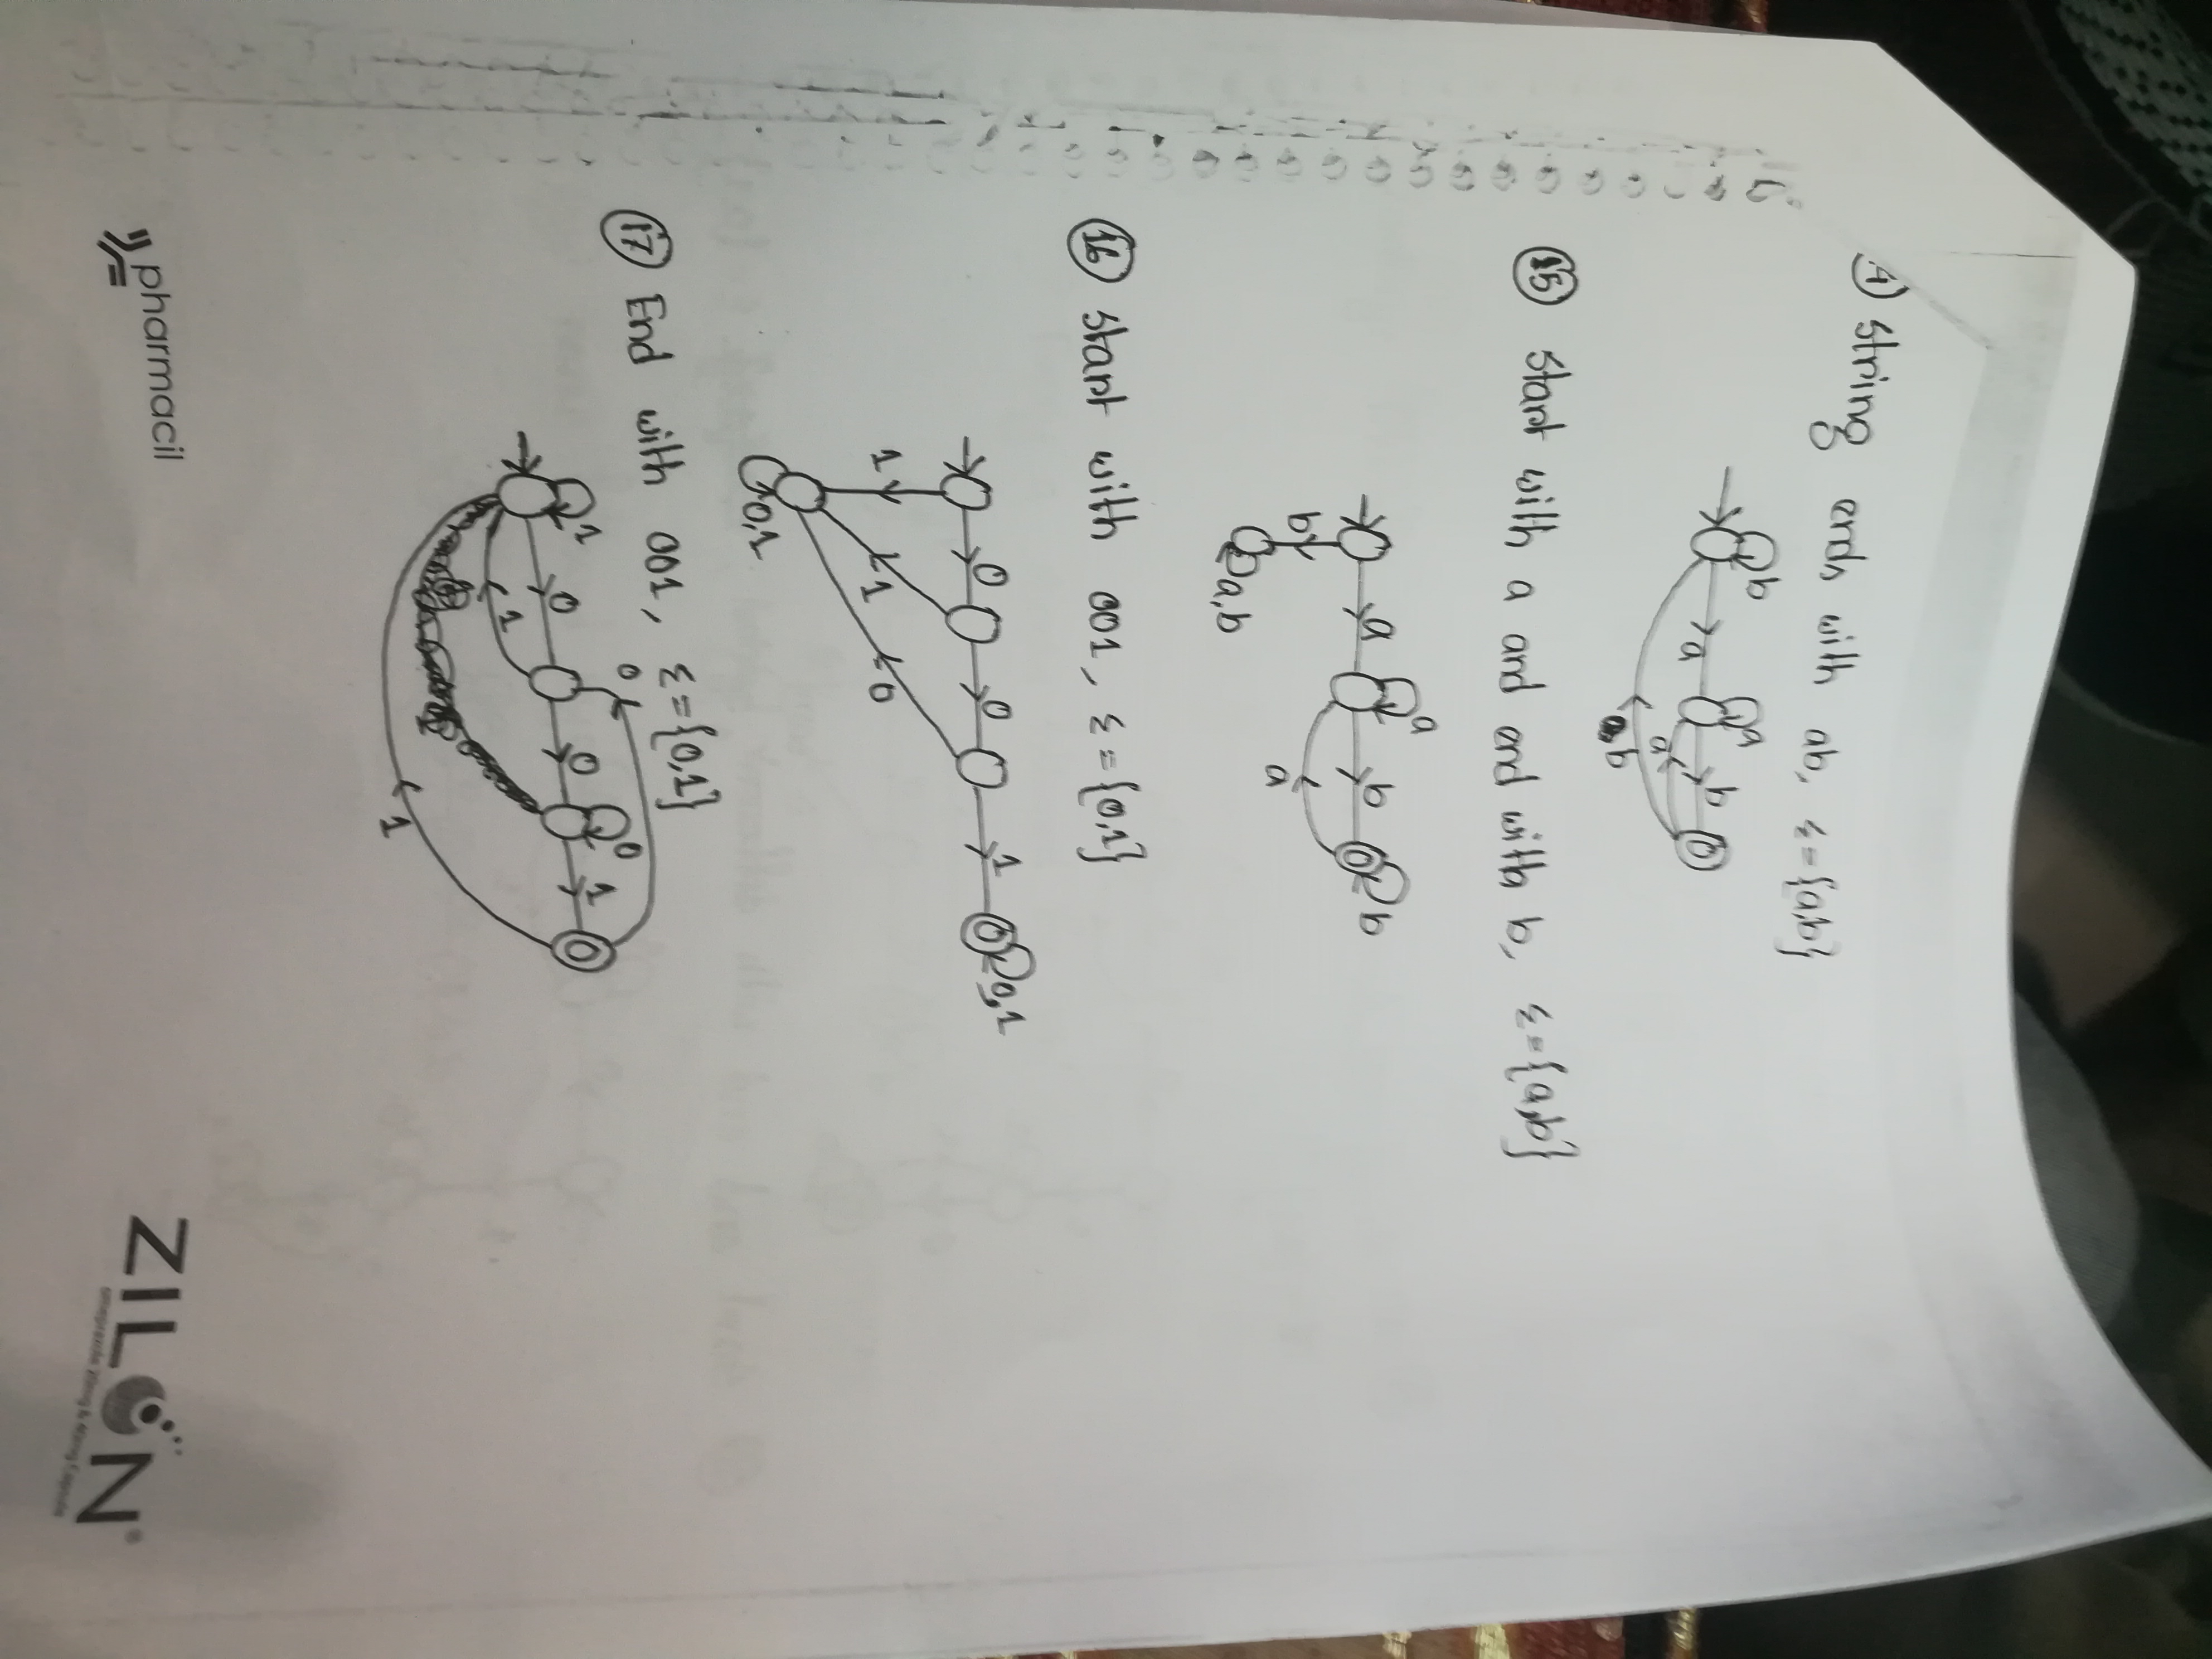 4) String ends with ab, ε={a,b}
b
a
a
b
a
b
15 Start with a and end with b, ε={a,b}
a
a
b
b
b
a
a,b
16 Start with 001, ε={0,1}
0
0
1
0,1
1
1
0
0,1
17 End with 001, ε={0,1}
0
0
1
0
0
1
1
1
pharmacil
ZILON®
omeprazole 20mg & 40mg Capsule